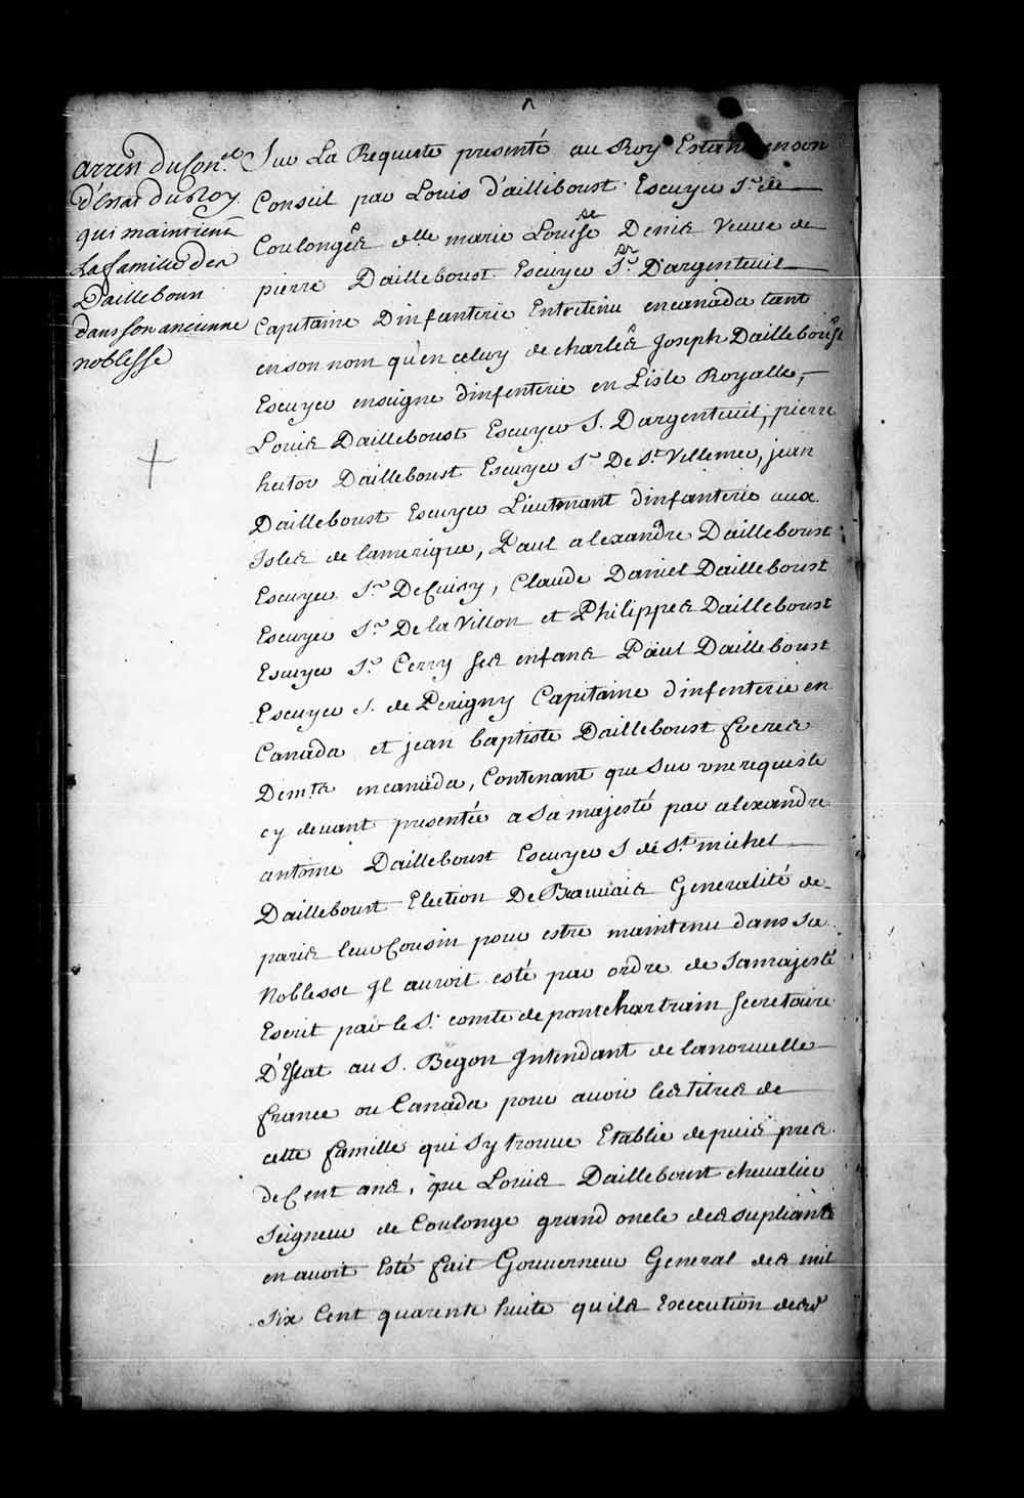 arrest du Con.el
d'Estat du Roy
qui maintient
La famille des
Dailleboun
dans son ancienne
noblesse
Sur La Requeste presenté au Roy Estant en son
Conseil par Louis d'ailliboust Escuyer Sr. de
Coulonges delle marie Louise Denis Veuve de
pierre Dailleboust Escuyer Sr. D'argenteuil
Capitaine Dinfanterie Entretenu en canada tant
en son nom qu'en celuy de charles Joseph Dailleboust
Escuyer enseigne dinfenterie en Lisle Royalle,
Louis Dailleboust Escuyer S. Dargenteuil, pierre
hector Dailleboust Escuyer Sr De St. Villemer, jean
Dailleboust Escuyer Lieutenant dinfanterie aux
Isles de lamerique, Paul alexandre Dailleboust
Escuyer Sr. De Cuisy, Claude Daniel Dailleboust
Escuyer Sr. De la Villon et Philippes Dailleboust
Escuyer Sr. Cerry ses enfans Paul Dailleboust
Escuyer S. de Perigny Capitaine dinfenterie en
Canada et jean baptiste Dailleboust freres
Dem.ts en canada, Contenant que sur une requeste
cy devant presentée a sa majesté par alexandre
antoine Dailleboust Escuyer S de St. michel
Dailleboust Election De Beauvais Generalité de
paris leur Cousin pour estre maintenu dans sa
Noblesse Jl auroit esté par ordre de Samajesté
Escrit par le S. comte de pontchartrain secretaire
D'Estat au S. Begon Jntendant de la nouvelle
france ou Canada pour avoir les titres de
cette famille qui sy trouve Etablie depuis pres
de Cent ans, que Louis Dailleboust chevalier
seigneur de Coulonge grand oncle des supliants
en avoit Esté fait Gouverneur General des mil
six Cent quarente huite quils Execution